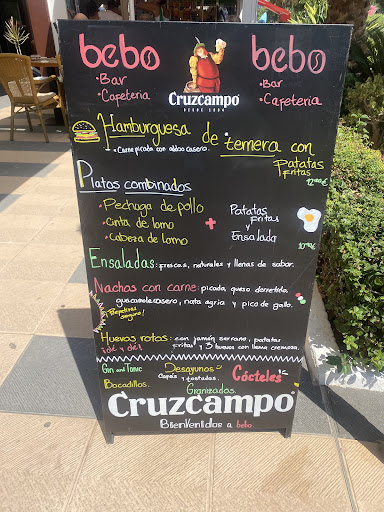 bebo
• Bar
• Cafeteria
Cruzcampo
DESDE 1904
bebo
• Bar
• Cafeteria
Hamburguesa de ternera con
Patatas
Fritas
• Carne picada con adobo casero.
Platos combinados
• Pechuga de pollo
• Cinta de lomo
• Cabeza de lomo
+
Patatas
Fritas
y
Ensalada
Ensaladas: frescas, naturales y llenas de sabor.
Nachos con carne: picada, queso derretido,
guacamole casero, nata agria y pico de gallo.
¡Repetirás seguro!
Huevos rotos: con jamón serrano, patatas
fritas y 3 huevos con llema cremosa.
Gin and Tonic
Desayunos
Cafés y tostadas.
Cócteles
Bocadillos.
Granizados.
Cruzcampo
Bienvenidos a bebo.